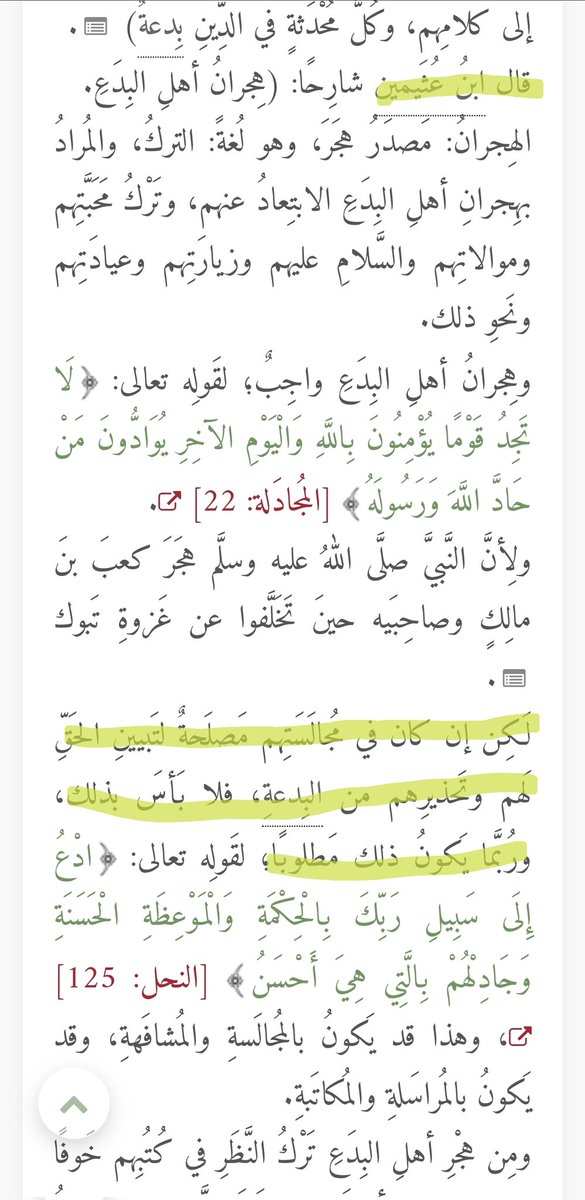 إلى كلامِهم، وكُلُّ مُحْدَثةٍ في الدِّينِ بِدعةٌ) .
قال ابنُ عُثَيمين شارِحًا: (هِجرانُ أهلِ البِدَعِ.
الهِجرانُ: مَصدَرُ هَجَرَ، وهو لُغةً: التركُ، والمُرادُ
بهِجرانِ أهلِ البِدَعِ الابتِعادُ عنهم، وتَرْكُ مَحَبَّتِهم
وموالاتِهم والسَّلامِ عليهم وزيارَتِهم وعيادَتِهم
ونَحوِ ذلك.
وهِجرانُ أهلِ البِدَعِ واجِبٌ؛ لقَولِه تعالى: ﴿لَا
تَجِدُ قَوْمًا يُؤْمِنُونَ بِاللَّهِ وَالْيَوْمِ الآخِرِ يُوَادُّونَ مَنْ
حَادَّ اللَّهَ وَرَسُولَهُ﴾ [المُجادَلة: 22] .
ولِأنَّ النَّبيَّ صلَّى اللهُ عليه وسلَّم هَجَرَ كعبَ بنَ
مالِكٍ وصاحِبَيه حينَ تَخَلَّفوا عن غَزوةِ تَبوك
.
لَكِن إن كان في مُجالَستِهم مَصلَحةٌ لتَبيينِ الحَقِّ
لهم وتَحذيرِهم من البِدعةِ، فلا بَأسَ بذلك،
ورُبَّما يَكونُ ذلك مَطلوبًا؛ لقَولِه تعالى: ﴿ادْعُ
إِلَى سَبِيلِ رَبِّكَ بِالْحِكْمَةِ وَالْمَوْعِظَةِ الْحَسَنَةِ
وَجَادِلْهُمْ بِالَّتِي هِيَ أَحْسَنُ﴾ [النحل: 125]
، وهذا قد يَكونُ بالمُجالَسةِ والمُشافَهةِ، وقد
يَكونُ بالمُراسَلةِ والمُكاتَبةِ.
ومِن هجْرِ أهلِ البِدَعِ تَرْكُ النَّظَرِ في كُتُبِهم خَوفًا